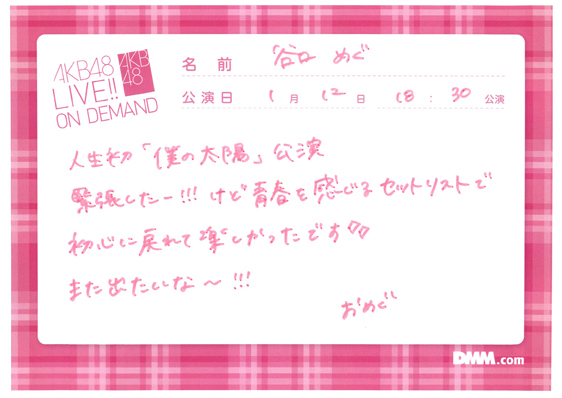 AKB48
LIVE!!
ON DEMAND
AKB
48
名前 谷口 めぐ
公演日 1月 12日 18:30 公演
人生初「僕の太陽」公演
緊張したー!!! けど青春を感じるセットリストで
初心に戻れて楽しかったです♡♡
また出たいな〜!!!
おめぐ
DMM.com